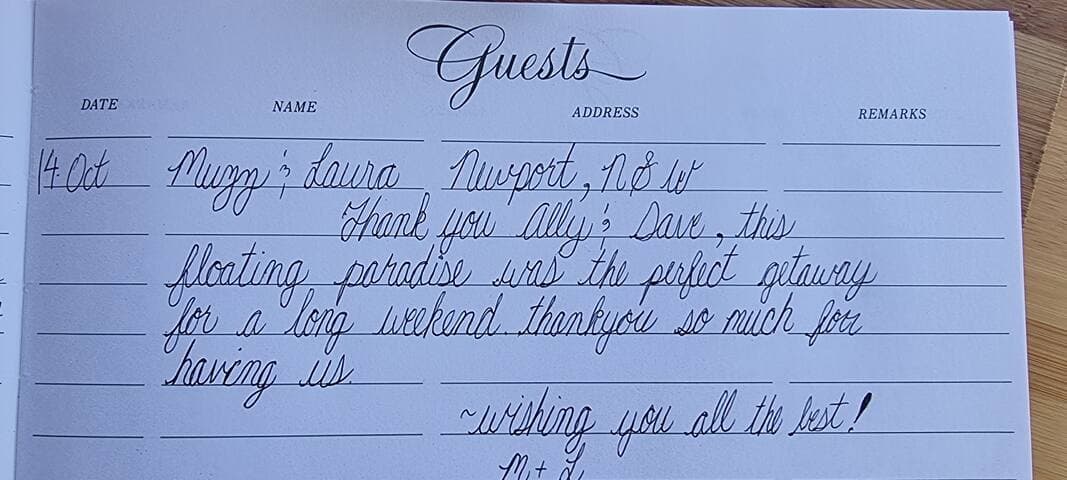 Guests
DATE NAME ADDRESS REMARKS
14. Oct Mugzy & Laura Newport, NSW
Thank you Ally & Dave, this
floating paradise was the perfect getaway
for a long weekend. thankyou so much for
having us.
~wishing you all the best!
M + L